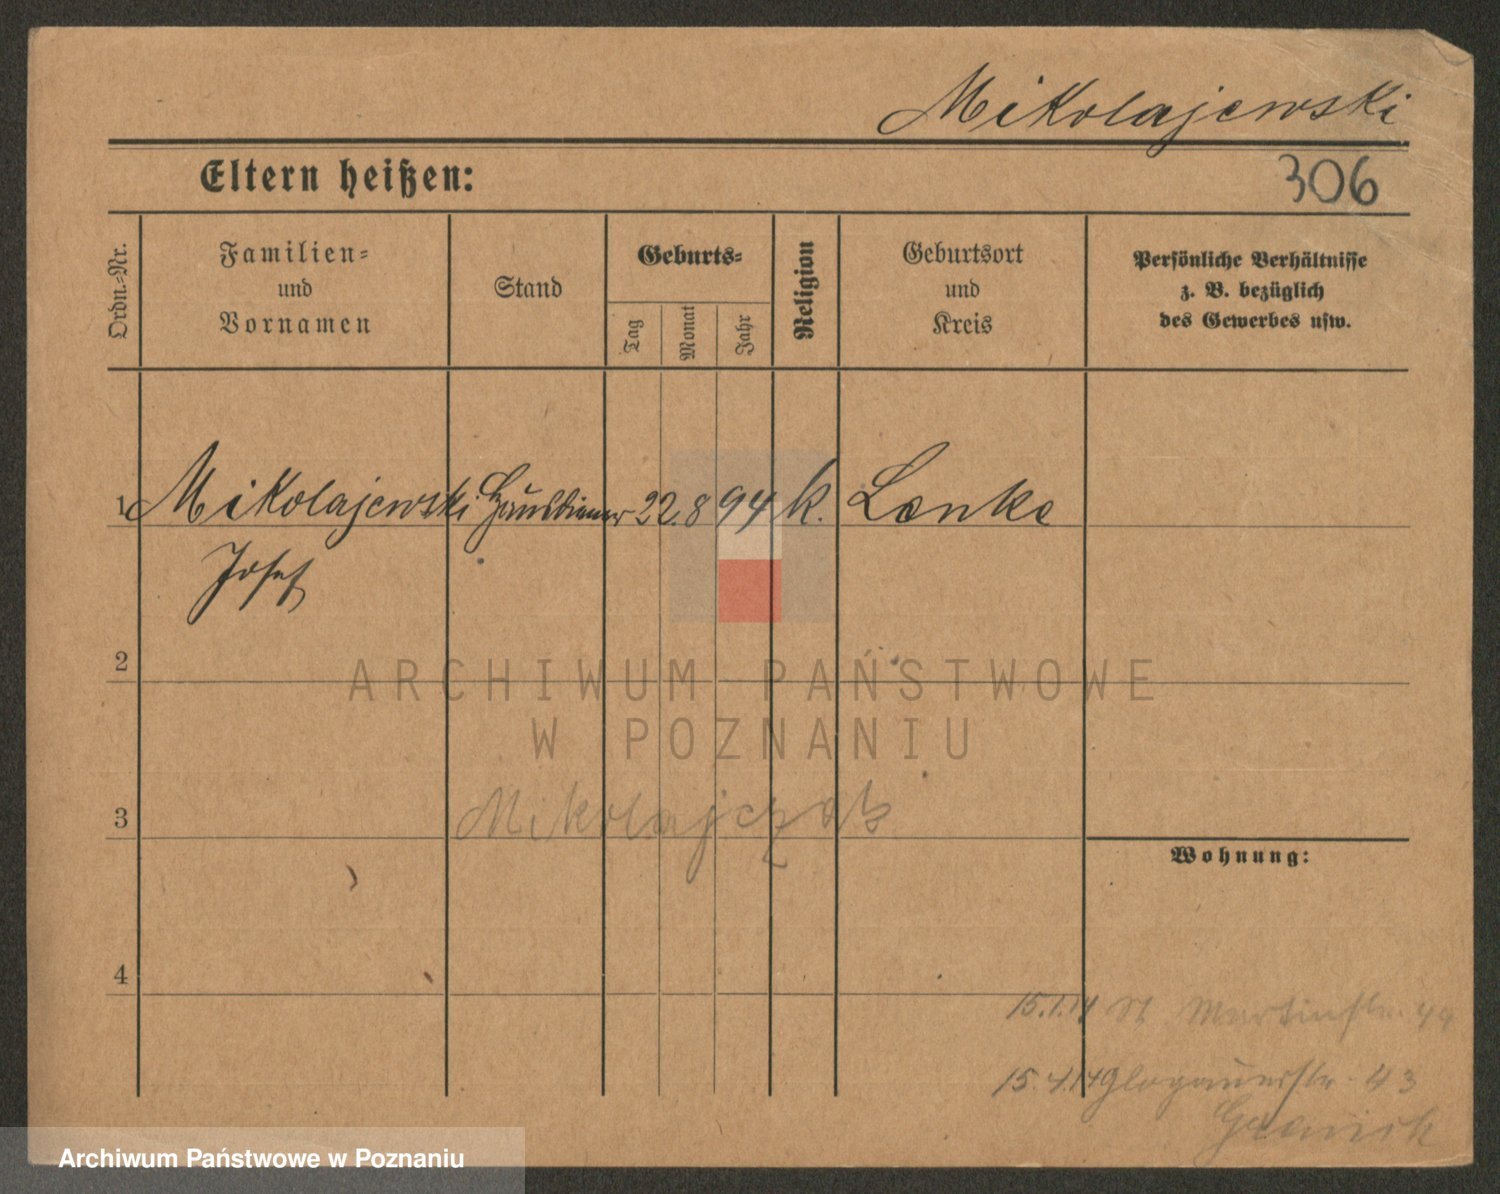 Mikolajewski
Eltern heißen:
306
Ordn.-Nr.
Familien-
und
Vornamen
Stand
Geburts-
Tag
Monat
Jahr
Religion
Geburtsort
und
Kreis
Persönliche Verhältnisse
z. B. bezüglich
des Gewerbes usw.
1 Mikolajewski Hausdiener 22. 8 94 k. Lenke
Josef
2
ARCHIWUM PAŃSTWOWE
W POZNANIU
3 Mikolajczak
Wohnung:
4
15.1.14 St Martinstr. 44
15.4.14 Glogauerstr. 43
Archiwum Państwowe w Poznaniu